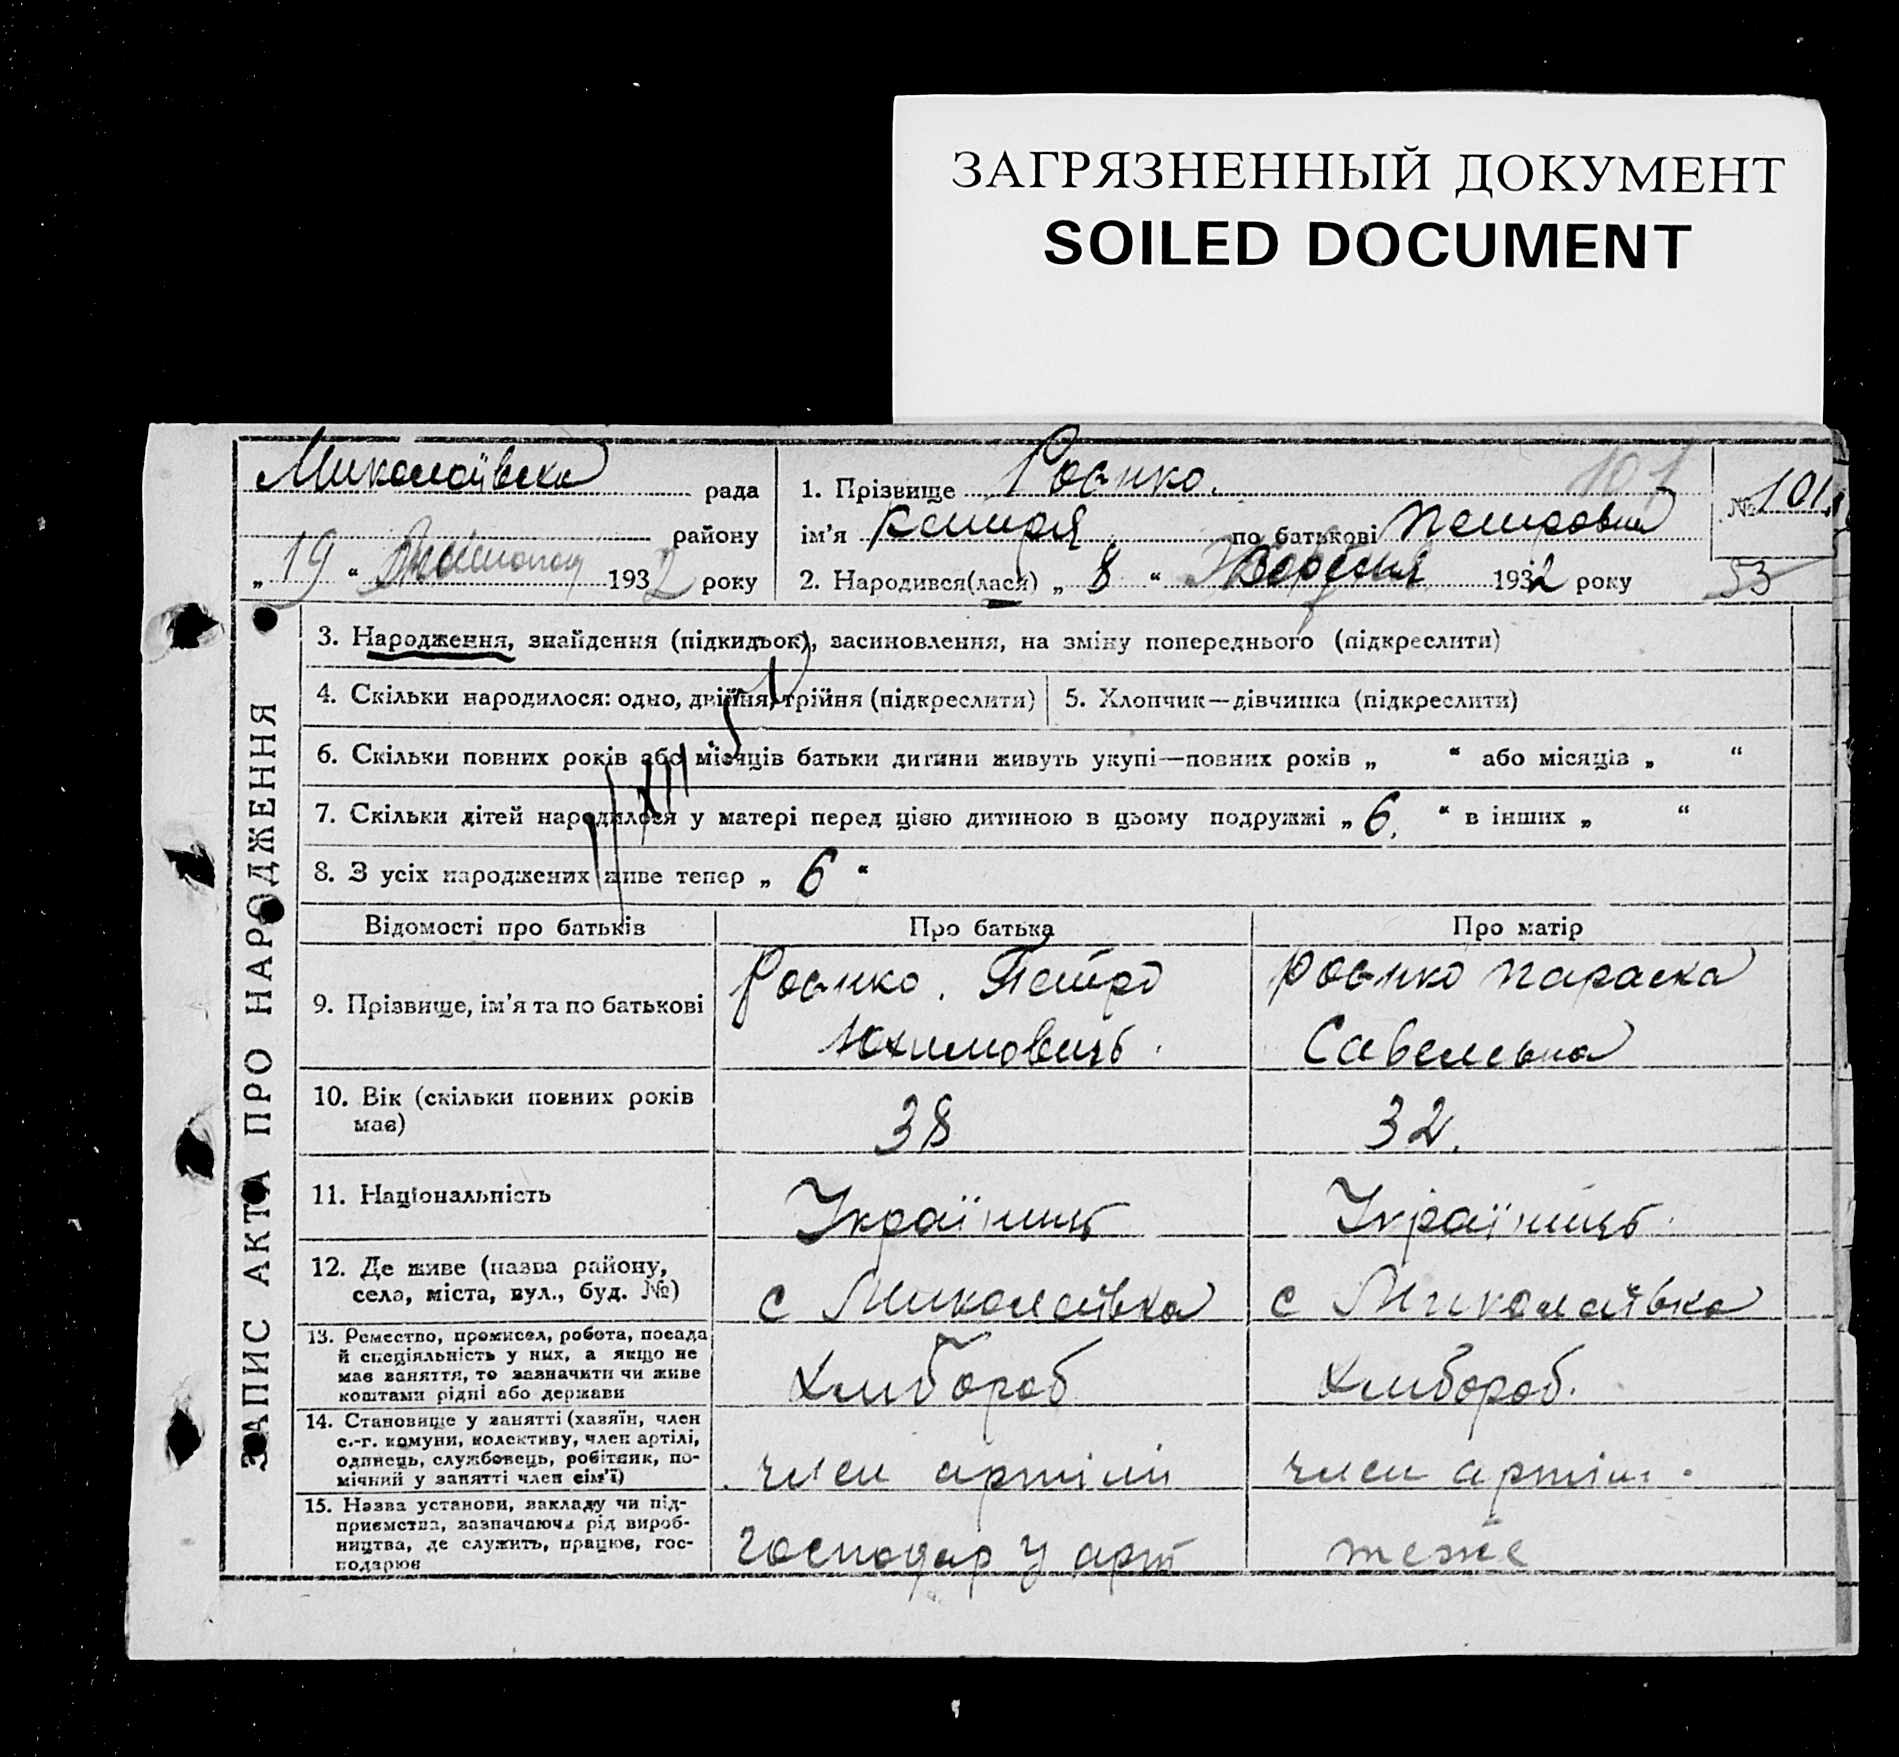 ЗАГРЯЗНЕННЫЙ ДОКУМЕНТ
SOILED DOCUMENT
Миколаївска рада
району
„ 19 “ 1932 року
1. Прізвище 101
ім'я по батькові Петровна
2. Народився(лася) „ 8 “ 1932 року
№ 101
53
ЗАПИС АКТА ПРО НАРОДЖЕННЯ
3. Народження, знайдення (підкидьок), засиновлення, на зміну попереднього (підкреслити)
4. Скільки народилося: одно, двійня, трійня (підкреслити)
5. Хлопчик—дівчинка (підкреслити)
6. Скільки повних років або місяців батьки дитини живуть укупі—повних років „ “ або місяців „ “
7. Скільки дітей народилося у матері перед цією дитиною в цьому подружжі „ 6. “ в інших „ “
8. З усіх народжених живе тепер „ 6 “
Відомості про батьків
Про батька
Про матір
9. Прізвище, ім'я та по батькові
Петро
Юхимовичь.
Параска
Савельвна
10. Вік (скільки повних років
має)
38
32.
11. Національність
Українець
Українець.
12. Де живе (назва району,
села, міста, вул., буд. №)
с Миколаївка
с Миколаївка
13. Ремество, промисел, робота, посада
й спеціяльність у них, а якщо не
має заняття, то зазначити чи живе
коштами рідні або держави
хлибороб
хлибороб.
14. Становище у занятті (хазяїн, член
с.-г. комуни, колективу, член артілі,
одинець, службовець, робітник, по-
мічний у занятті член сім'ї)
член артіли
член артіли.
15. Назва установи, закладу чи під-
приємства, зазначаючи рід вироб-
ництва, де служить, працює, гос-
подарює
господар у арт
теже